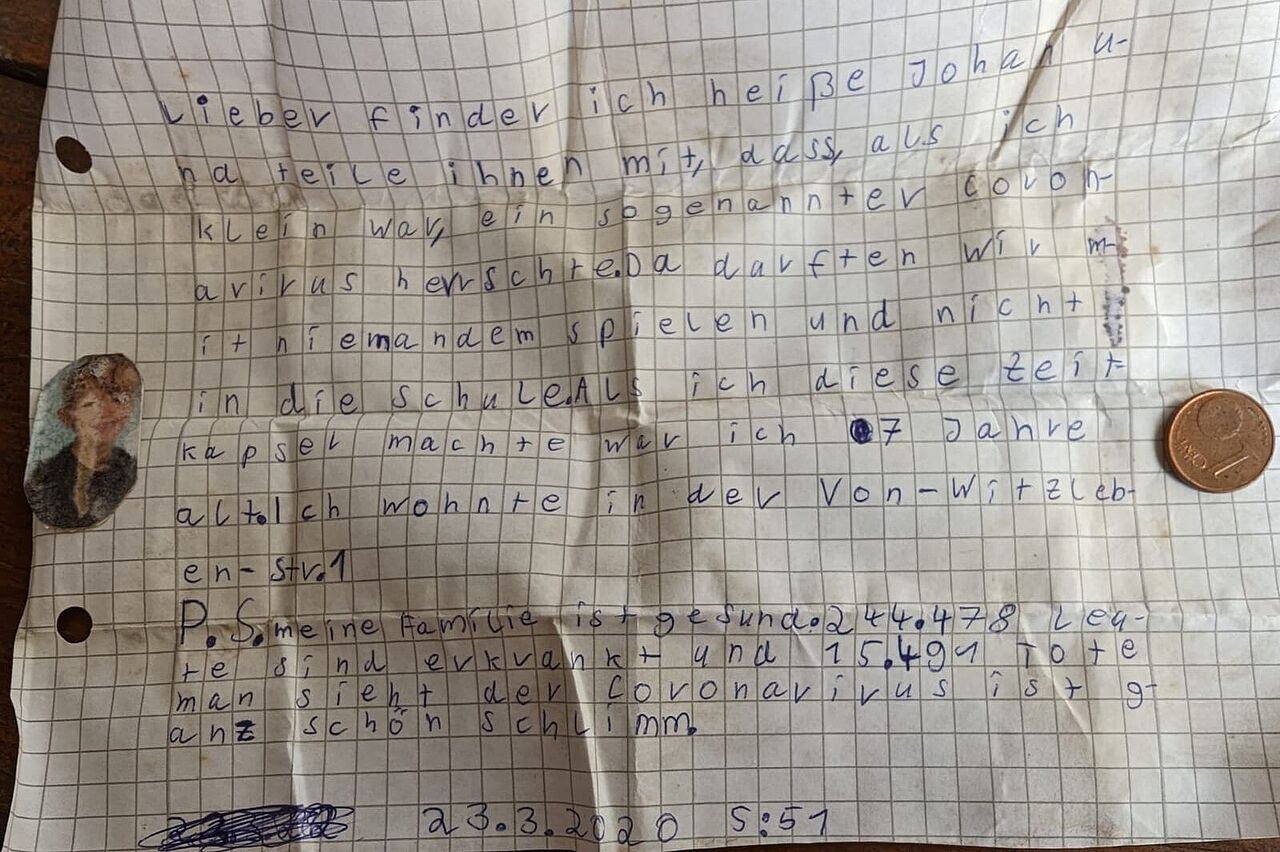 Lieber finder ich heiße Johan u-
nd teile ihnen mit, dass, als ich
klein war, ein sogenannter coron-
avirus herrschte.Da darften wir m-
it niemandem spielen und nicht
in die schule.Als ich diese zeit-
kapsel machte war ich 7 Jahre
alt.Ich wohnte in der Von-Witzleb-
en-Str.1
P.S.meine Familie ist gesund.244.478 Leu-
te sind erkrankt und 15.491 Tote
man sieht der Coronavirus ist g-
anz schön schlimm.
23.3.2020 5:51
1 CENT